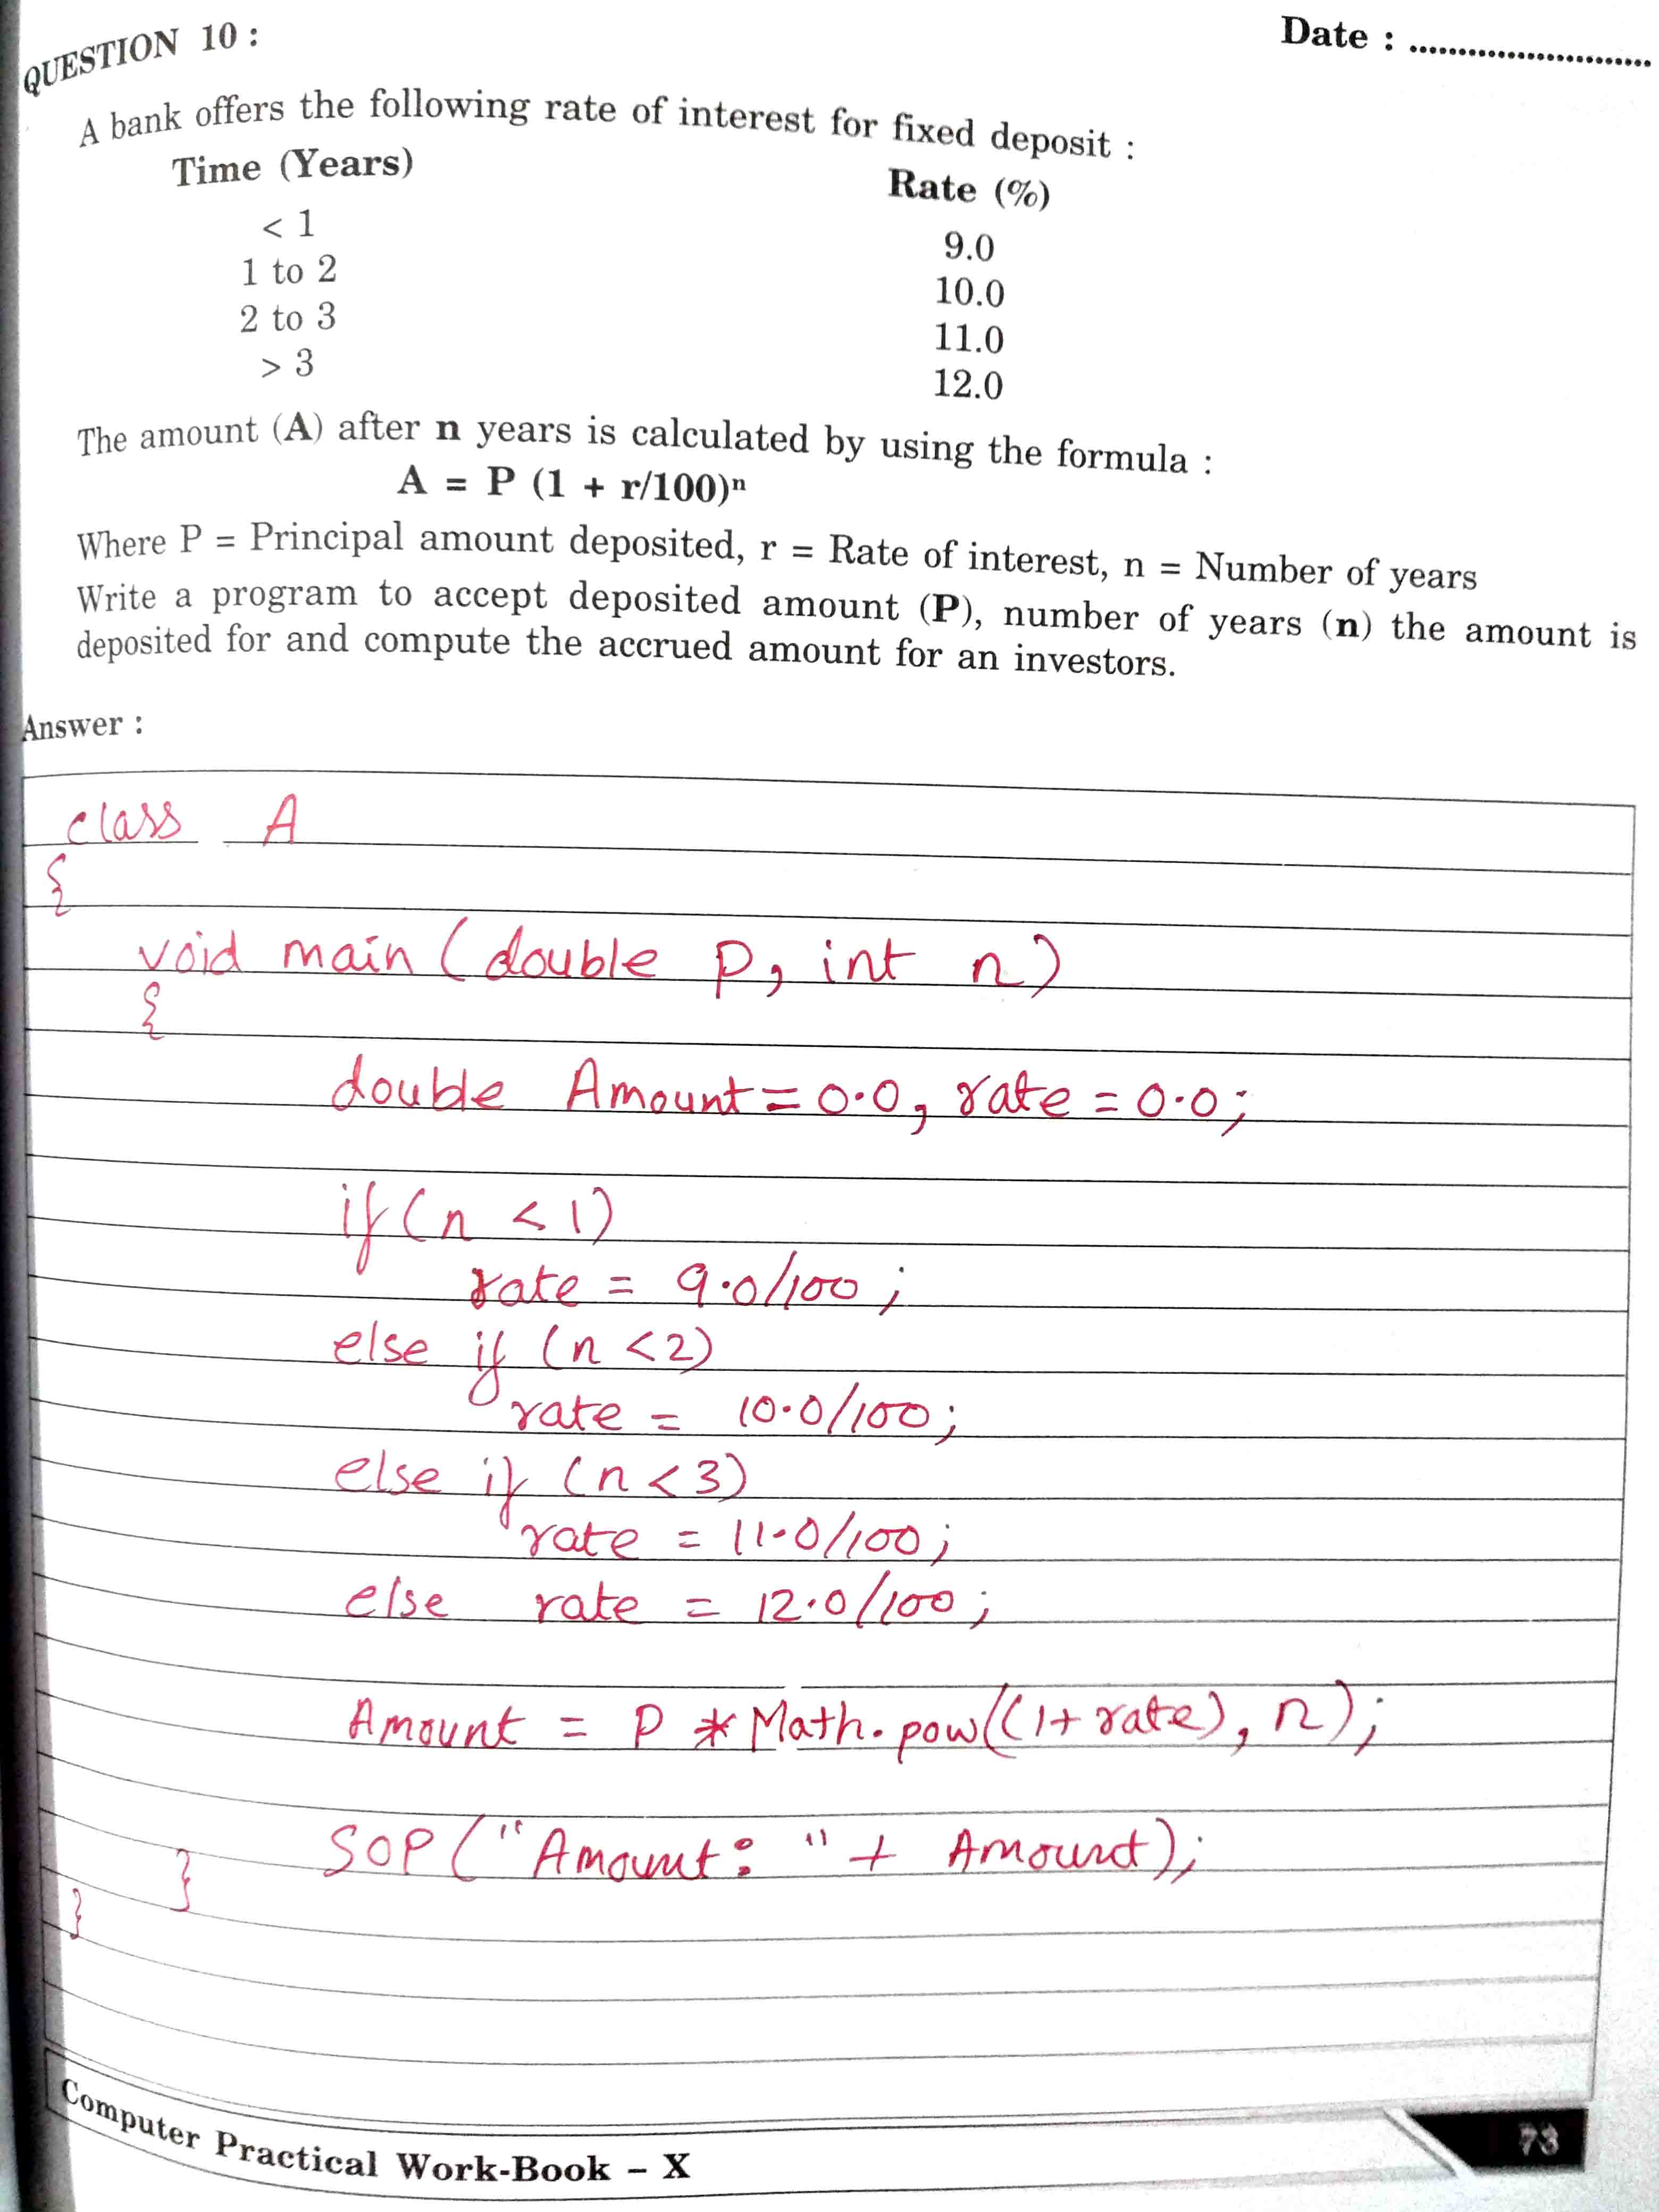 QUESTION 10 :
Date : ..........................
A bank offers the following rate of interest for fixed deposit :
Time (Years) Rate (%)
< 1 9.0
1 to 2 10.0
2 to 3 11.0
> 3 12.0
The amount (A) after n years is calculated by using the formula :
A = P (1 + r/100)ⁿ
Where P = Principal amount deposited, r = Rate of interest, n = Number of years
Write a program to accept deposited amount (P), number of years (n) the amount is
deposited for and compute the accrued amount for an investors.
Answer :
class A
{
void main (double p, int n)
{
double Amount = 0.0, rate = 0.0;
if (n < 1)
rate = 9.0/100;
else if (n < 2)
rate = 10.0/100;
else if (n < 3)
rate = 11.0/100;
else rate = 12.0/100;
Amount = P * Math.pow((1+rate), n);
SOP ("Amount: " + Amount);
}
}
Computer Practical Work-Book – X
73